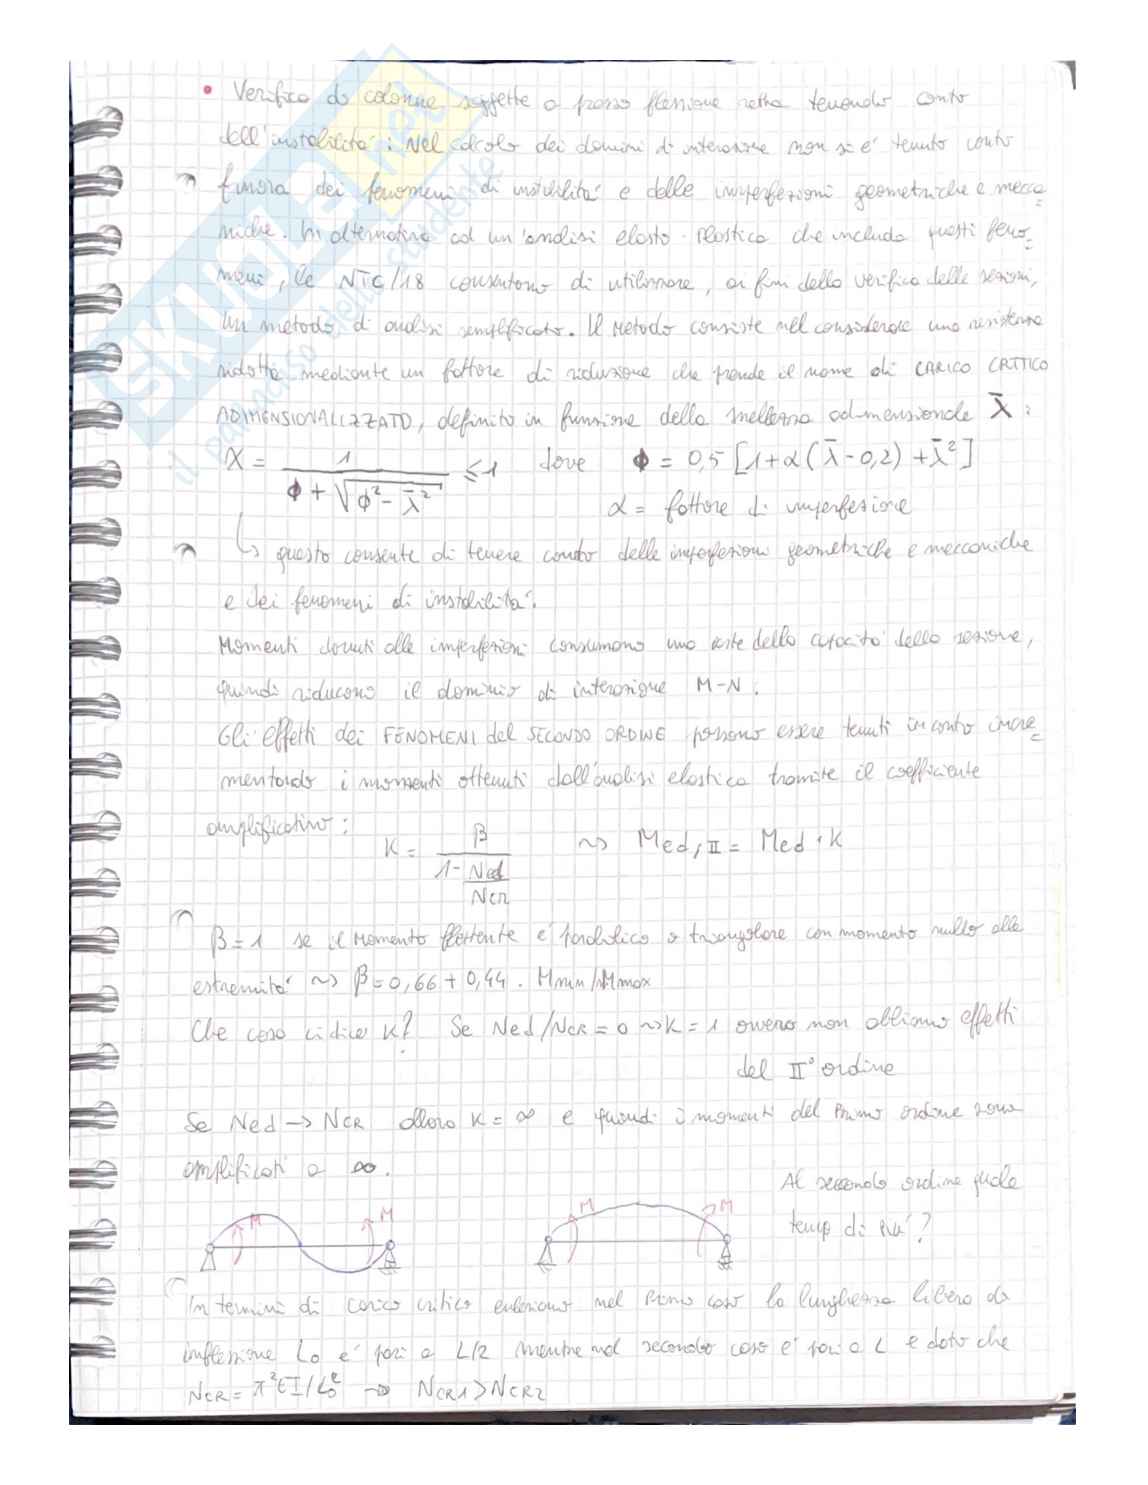 • Verifica di colonne soggette a presso flessione retta tenendo conto
dell'instabilità: Nel calcolo dei domini di interazione non si è tenuto conto
finora dei fenomeni di instabilità e delle imperfezioni geometriche e mecca
niche. In alternativa ad un'analisi elasto-plastica che includa questi feno
meni, le NTC/18 consentono di utilizzare, ai fini della verifica delle sezioni,
un metodo di analisi semplificato. Il metodo consiste nel considerare una resistenza
ridotta mediante un fattore di riduzione che prende il nome di CARICO CRITICO
ADIMENSIONALIZZATO, definito in funzione della snellezza adimensionale λ̄:
χ = 1 / (ϕ + √(ϕ² - λ̄²)) ≤ 1 dove ϕ = 0,5 [1 + α(λ̄ - 0,2) + λ̄²]
α = fattore di imperfezione
↳ questo consente di tenere conto delle imperfezioni geometriche e meccaniche
e dei fenomeni di instabilità.
Momenti dovuti alle imperfezioni consumano una parte della capacità della sezione,
quindi riducono il dominio di interazione M-N.
Gli effetti dei FENOMENI del SECONDO ORDINE possono essere tenuti in conto incre
mentando i momenti ottenuti dall'analisi elastica tramite il coefficiente
amplificativo:
K = β / (1 - Ned/Ncr) ~> Med,II = Med · K
β = 1 se il momento flettente è parabolico o triangolare con momento nullo alle
estremità ~> β = 0,66 + 0,44 . Mmin/Mmax
Che cosa ci dice K? Se Ned/Ncr = 0 ~> K = 1 ovvero non abbiamo effetti
del II° ordine
Se Ned -> Ncr allora K = ∞ e quindi i momenti del primo ordine sono
amplificati a ∞.
Al secondo ordine quale
temo di più?
M M M M
In termini di carico critico euleriano nel primo caso la lunghezza libera di
inflessione L₀ è pari a L/2 mentre nel secondo caso è pari a L e dato che
Ncr = π²EI/L₀² -> Ncr1 > Ncr2
SKUOLA.net
il paradiso dello studente